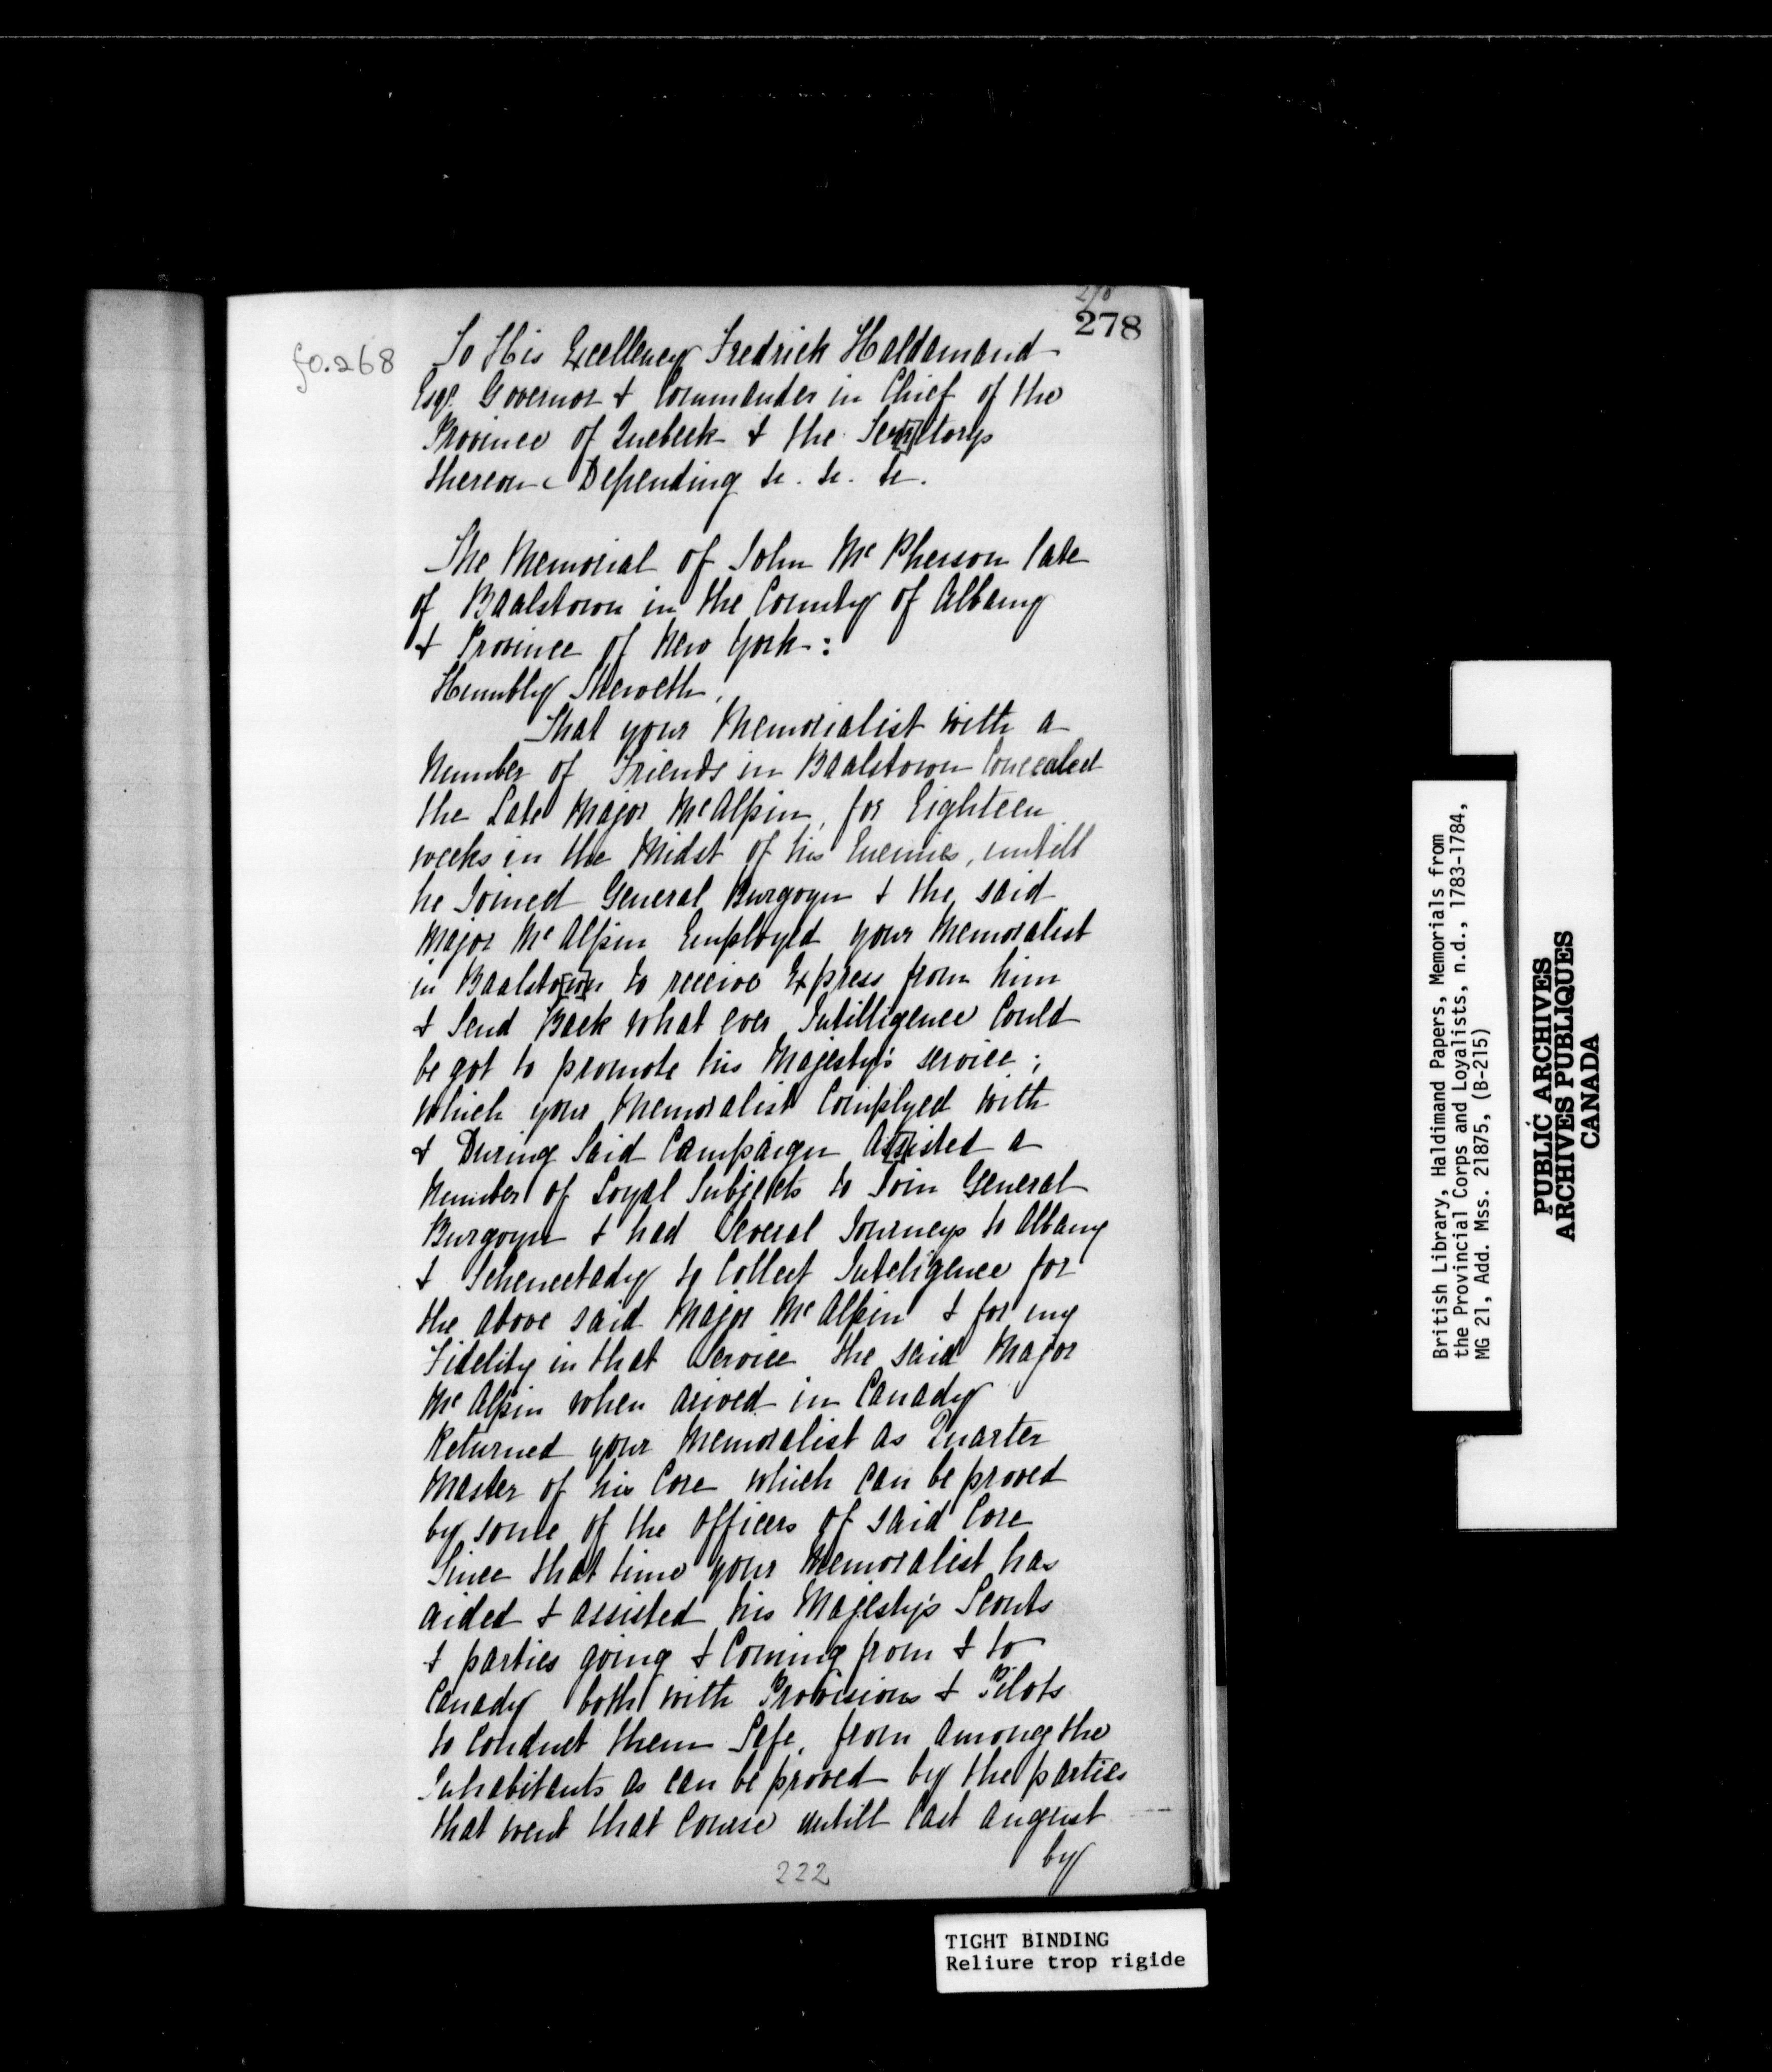 278
fo.268
To His Excellency Fredrick Haldamand
Esqr. Governor & Commander in Chief of the
Province of Quebeck & the Ter[r]itorys
thereon Depending &c. &c. &c.
The Memorial of John Mc Pherson late
of Baalstown in the County of Albany
& Province of New York:
Humbly Sheweth,
That your Memorialist with a
Number of Friends in Baalstown Concealed
the Late Major McAlpin, for Eighteen
weeks in the Midst of his Enemies, untill
he Joined General Burgoyn & the said
Major Mc Alpin Employed your Memoralist
in Baalsto[w]n to receive Express from him
& Send Back what ever Intilligence Could
be got to promote his Majesty's service;
which your Memoralist Complyed with
& During Said Campaign As[s]isted a
Number of Loyal Subjects to Join General
Burgoyn & had Several Journeys to Albany
& Schenectady to Collect Inteligence for
the above said Major Mc Alpin & for my
Fidelity in that Service the said Major
Mc Alpin when arived in Canady
Returned your Memoralist as Quarter
Master of his Core which can be proved
by some of the officers of said Core
Since that time your Memoralist has
aided & assisted his Majesty's Scouts
& parties going & Coming from & to
Canady both with Provisions & Pilots
to Conduct them Safe, from among the
Inhabitants as can be proved by the parties
that went that Course untill last august
by
222
TIGHT BINDING
Reliure trop rigide
British Library, Haldimand Papers, Memorials from
the Provincial Corps and Loyalists, n.d., 1783-1784,
MG 21, Add. Mss. 21875, (B-215)
PUBLIC ARCHIVES
ARCHIVES PUBLIQUES
CANADA